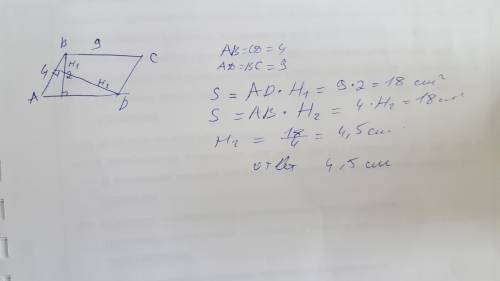 B 9 C
4 H₁
2
H₂
A D
AB=CD=4
AD=BC=9
S = AD · H₁ = 9·2 = 18 cm²
S = AB · H₂ = 4·H₂ = 18 cm²
H₂ = 18/4 = 4,5 cm.
ответ 4,5 см